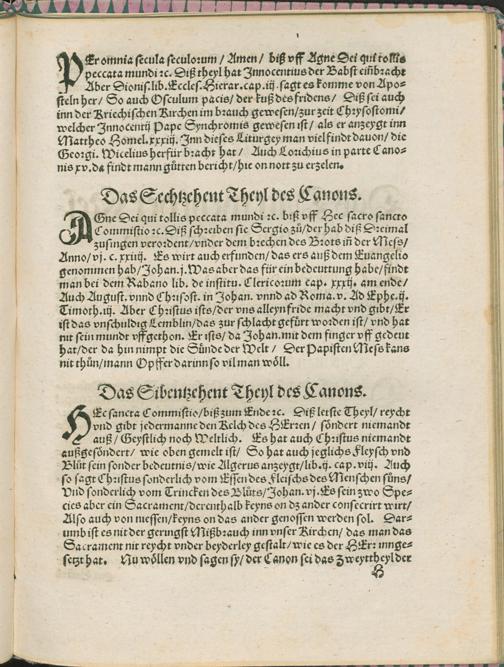 PEr omnia secula seculorum / Amen / biß vff Agne Dei qui tollis
peccata mundi ꝛc. Diß theyl hat Innocentius der Babst eiñbracht
Aber Dionis. lib. Eccles. Hierar. cap. iij. sagt es komme von Apo-
steln her / So auch Osculum pacis / der kuß des fridens / Diß sei auch
inn der Kriechischen Kirchen im brauch gewesen / zur zeit Chrysostomi /
welcher Innocentij Pape Synchromis gewesen ist / als er anzeygt inn
Mattheo Homel. xxxiij. Inn dieses Liturgey man viel findt dauon / die
Georgi. Wicelius herfür bracht hat / Auch Lorichius in parte Cano-
nis xv. da findt mann gůtten bericht / hie on nott zu erzelen.
Das Sechtzehent Theyl des Canons.
AGne Dei qui tollis peccata mundi ꝛc. biß vff Hec sacro sancto
Commistio ꝛc. Diß schreiben sie Sergio zů / der hab diß Dreimal
zusingen verordent / vnder dem brechen des Brots iñ der Mess /
Anno / vj. c. xxiiij. Es wirt auch erfunden / das ers auß dem Euangelio
genommen hab / Johan. j. Was aber das für ein bedeuttung habe / findt
man bei dem Rabano lib. de institu. Clericorum cap. xxxij. am ende /
Auch August. vnnd Chrisost. in Johan. vnnd ad Roma. v. Ad Ephe. ij.
Timoth. iij. Aber Christus ists / der vns alleyn fride macht vnd gibt / Er
ist das vnschuldig Lemblin / das zur schlacht gefürt worden ist / vnd hat
nit sein mundt vffgethon. Er ists / da Johan. mit dem finger vff gedeut
hat / der da hin nimpt die Sünde der Welt / Der Papisten Mess kans
nit thůn / mann Opffer darinn so vil man wöll.
Das Sibentzehent Theyl des Canons.
HEc sancta Commistio / biß zum Ende ꝛc. Diß letste Theyl / reycht
vnd gibt jedermann den Kelch des HErren / söndert niemandt
auß / Geystlich noch Weltlich. Es hat auch Christus niemandt
außgesöndert / wie oben gemelt ist / So hat auch jeglichs Fleysch vnd
Blůt sein sonder bedeutnis / wie Algerus anzeygt / lib. ij. cap. viij. Auch
so sagt Christus sonderlich vom Essen des Fleischs des Menschen sůns /
Vnd sonderlich vom Trincken des Blůts / Johan. vj. Es sein zwo Spe-
cies aber ein Sacrament / derenthalb keyns on dz ander consecrirt wirt /
Also auch von niessen / keyns on das ander genossen werden sol. Dar-
umb ist es nit der geringst Mißbrauch inn vnser Kirchen / das man das
Sacrament nit reycht vnder beyderley gestalt / wie es der HErr inge-
setzt hat. Nu wöllen vnd sagen sy / der Canon sei das Zweyttheyl der
H